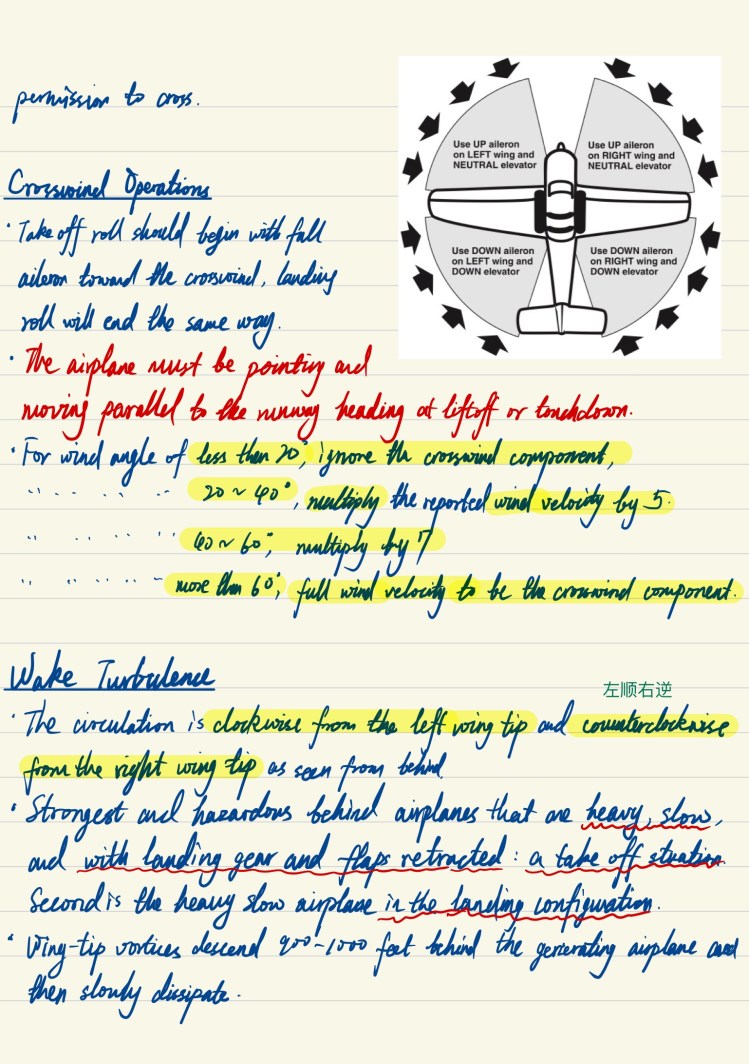 permission to cross.
Use UP aileron
on LEFT wing and
NEUTRAL elevator
Use UP aileron
on RIGHT wing and
NEUTRAL elevator
Use DOWN aileron
on LEFT wing and
DOWN elevator
Use DOWN aileron
on RIGHT wing and
DOWN elevator
Crosswind Operations
· Take off roll should begin with full
aileron toward the crosswind, landing
roll will end the same way.
· The airplane must be pointing and
moving parallel to the runway heading at liftoff or touchdown.
· For wind angle of less then 20°, ignore the crosswind component,
" " " " 20~40°, multiply the reported wind velocity by 5.
" " " " 40~60°, multiply by 7
" " " " more than 60°, full wind velocity to be the crosswind component.
Wake Turbulence
左顺右逆
· The circulation is clockwise from the left wing tip and counterclockwise
from the right wing tip as seen from behind
· Strongest and hazardous behind airplanes that are heavy, slow,
and with landing gear and flaps retracted: a take off stration
Second is the heavy slow airplane in the landing configuration.
· Wing-tip vortices descend 900-1000 feet behind the generating airplane and
then slowly dissipate.